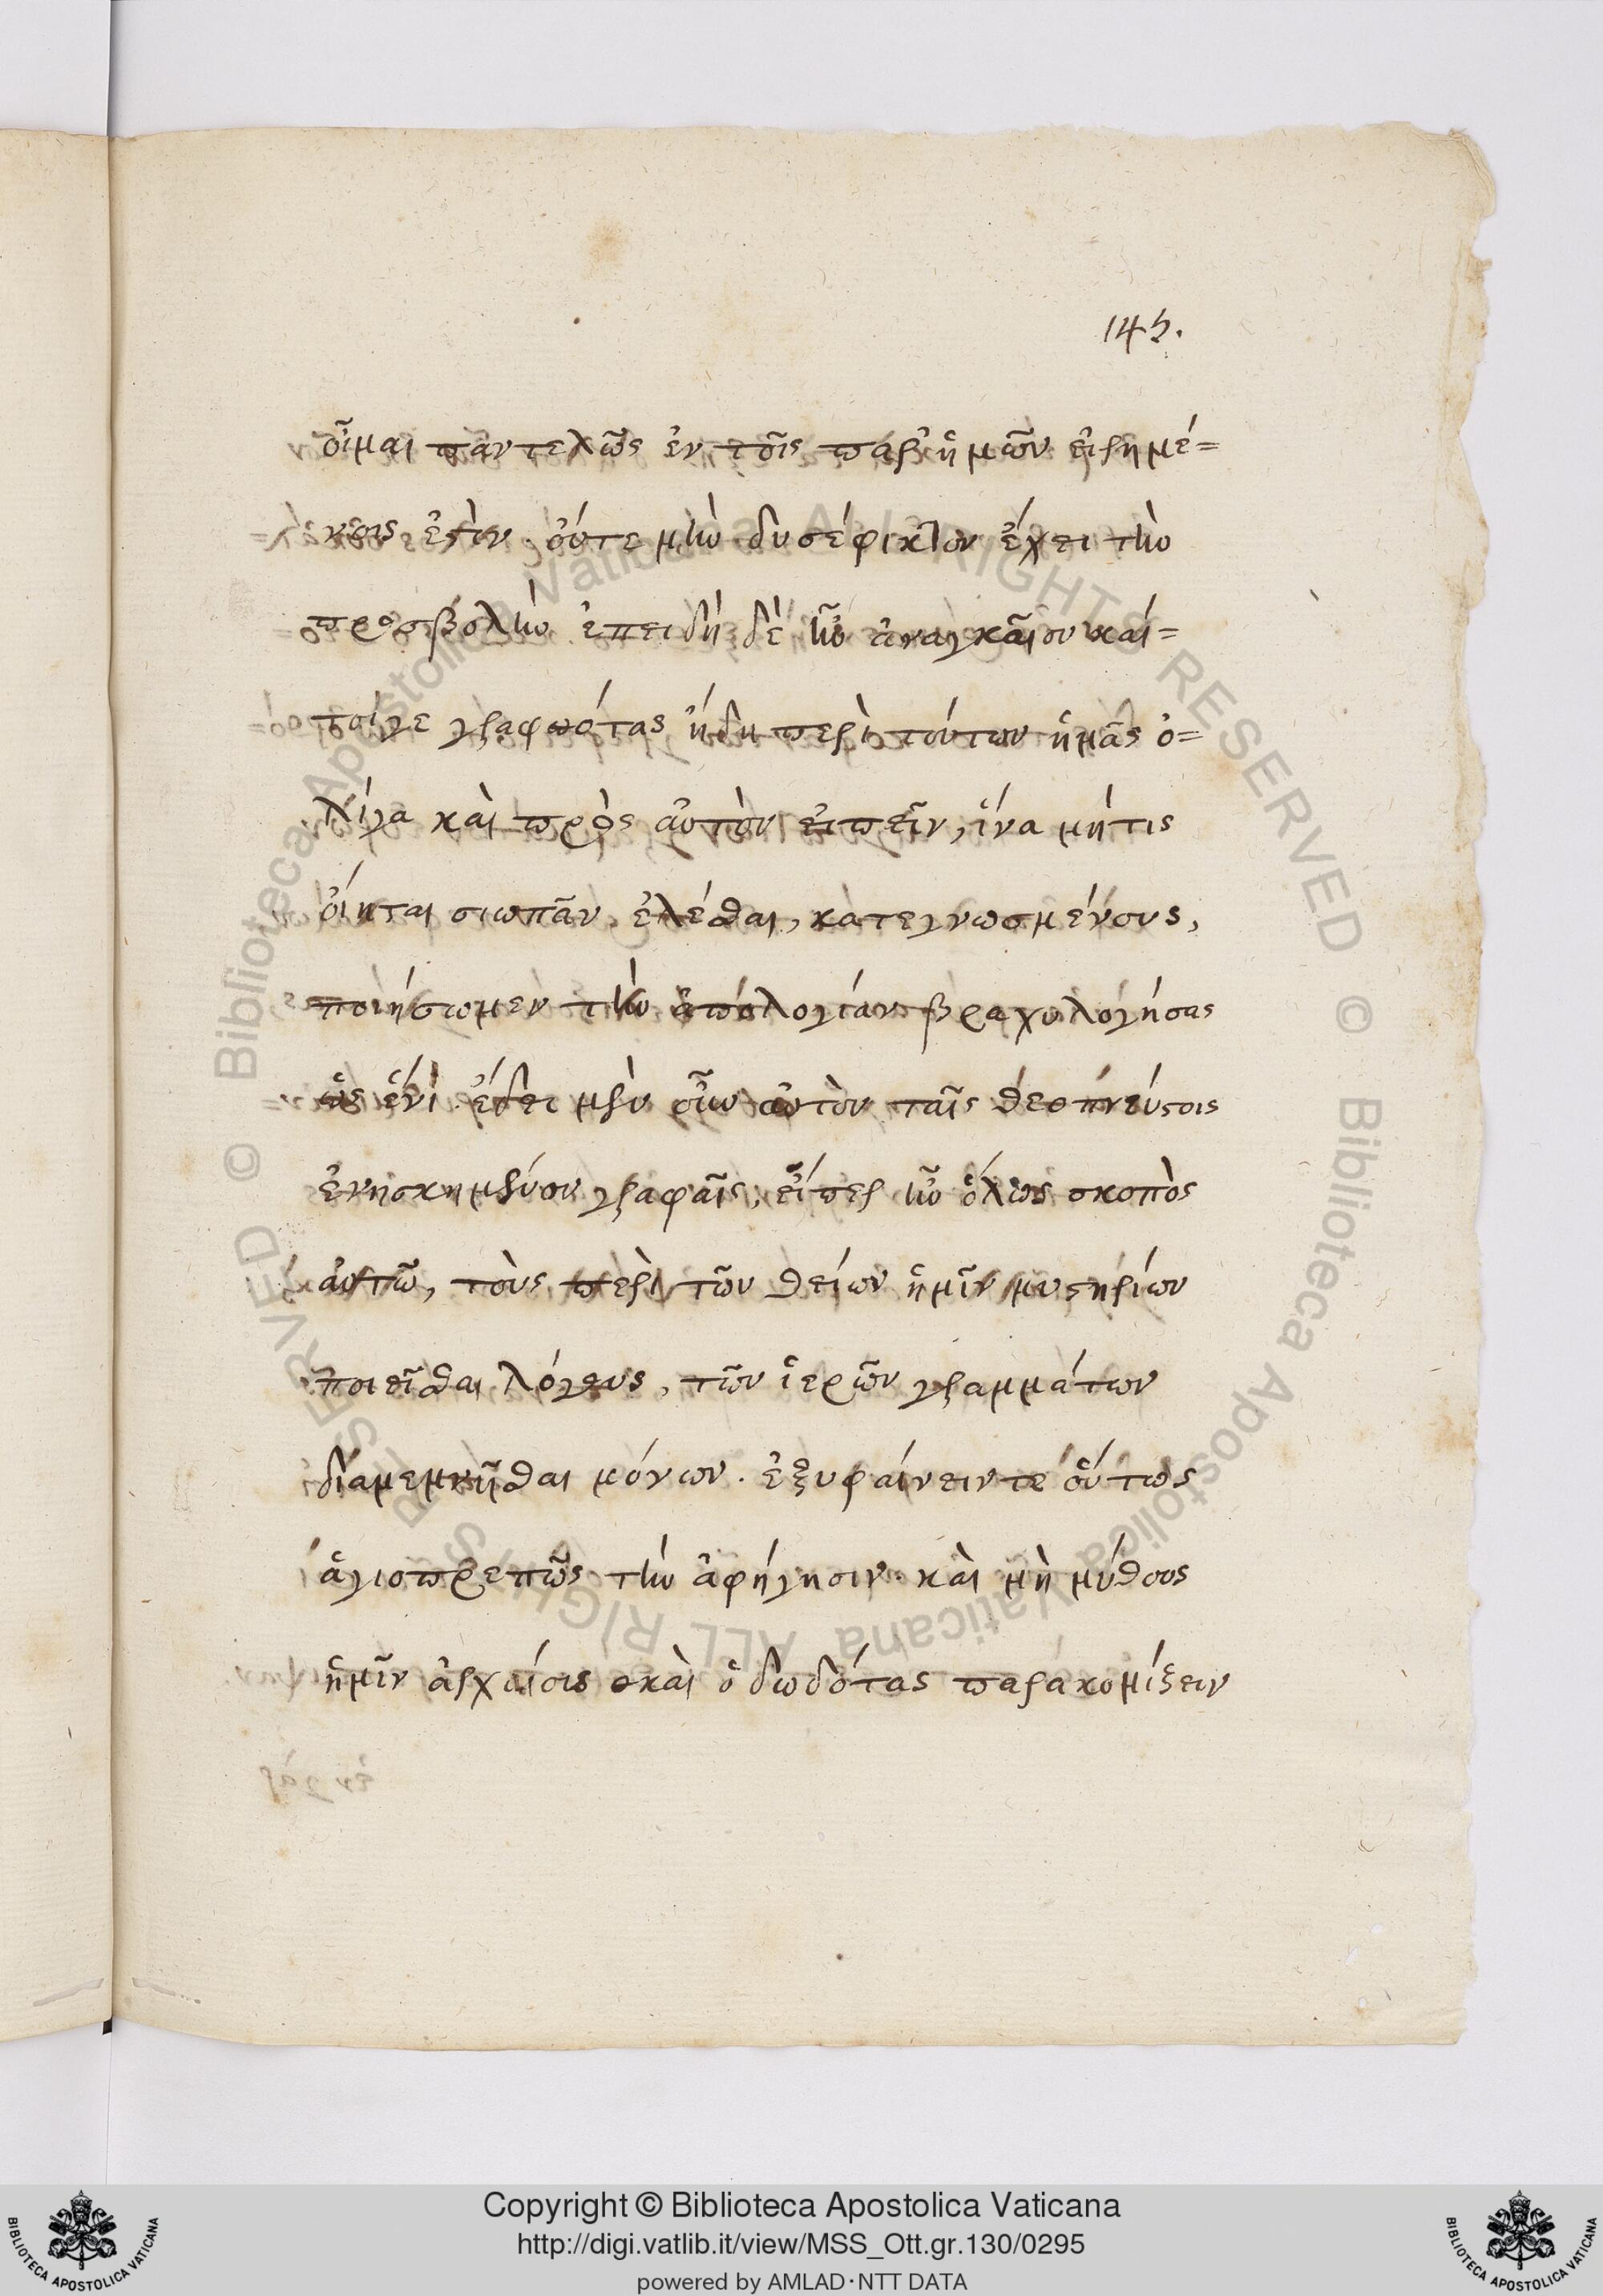 145.
οἶμαι παντελῶς ἐν τοῖς παρ' ἡμῶν εἰρημέ=
νοις ἐστὶν. οὔτε μὴν δυσέφικτον ἔχει τὴν
προσβολὴν. ἐπειδὴ δὲ ἦν ἀναγκαῖον καί=
τοίγε γραφότας ἤδη περὶ τούτων ἡμᾶς ὀ=
λίγα καὶ πρὸς αὐτὸν εἰπεῖν, ἵνα μήτις
οἴηται σιωπᾶν ἐλέσθαι, κατεγνωσμένους,
ποιήσωμεν τὴν ἀπολογίαν βραχυλογήσας
ὡς ἔνι. ἔδει μὲν οὖν αὐτὸν ταῖς θεοπνεύστοις
ἐνησκημένον γραφαῖς, εἴπερ ἦν ὅλως σκοπὸς
αὐτῷ, τοὺς περὶ τῶν θείων ἡμῖν μυστηρίων
ποιεῖσθαι λόγους, τῶν ἱερῶν γραμμάτων
διαμεμνῆσθαι μόνων. ἐξυφαίνειν τε οὕτως
ἁγιοπρεπῶς τὴν ἀφήγησιν. καὶ μὴ μύθους
ἡμῖν ἀρχαίοις καὶ ὁδωδότας παρακομίζειν
Copyright © Biblioteca Apostolica Vaticana
http://digi.vatlib.it/view/MSS_Ott.gr.130/0295
powered by AMLAD·NTT DATA
BIBLIOTECA APOSTOLICA VATICANA
BIBLIOTECA APOSTOLICA VATICANA
© Biblioteca Apostolica Vaticana ALL RIGHTS RESERVED © Biblioteca Apostolica Vaticana ALL RIGHTS RESERVED